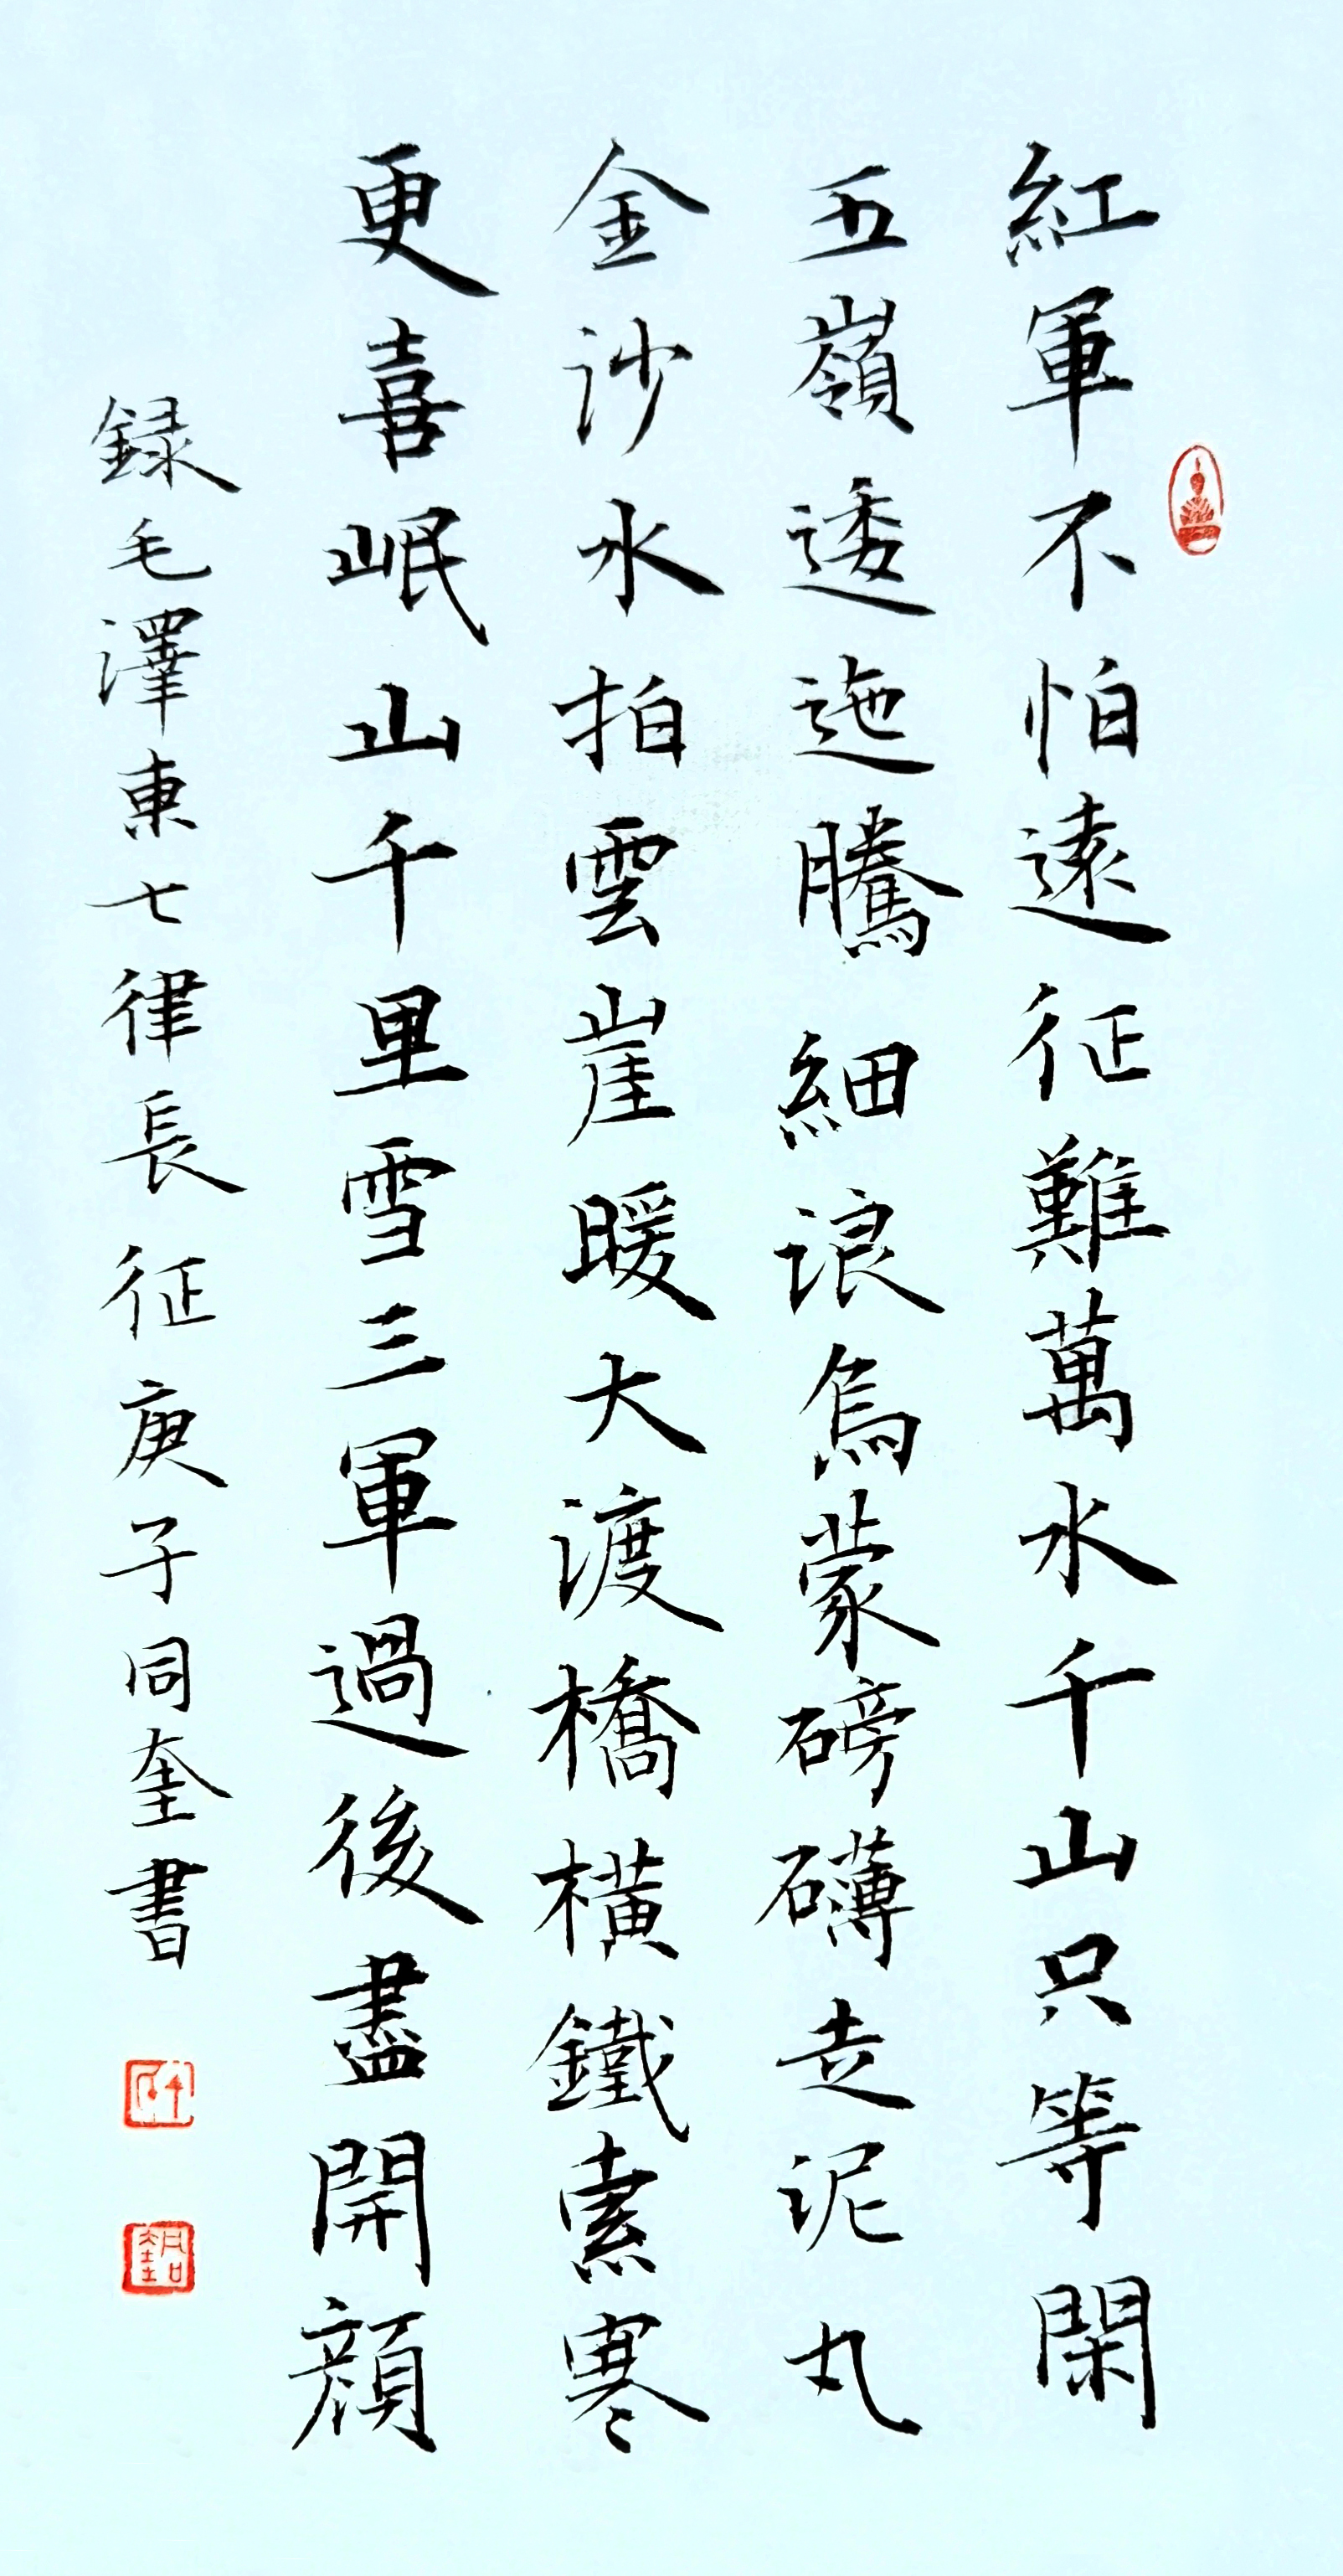 紅軍不怕遠征難萬水千山只等閑
五嶺逶迤騰細浪烏蒙磅礴走泥丸
金沙水拍雲崖暖大渡橋橫鐵索寒
更喜岷山千里雪三軍過後盡開顔
録毛澤東七律長征庚子同奎書